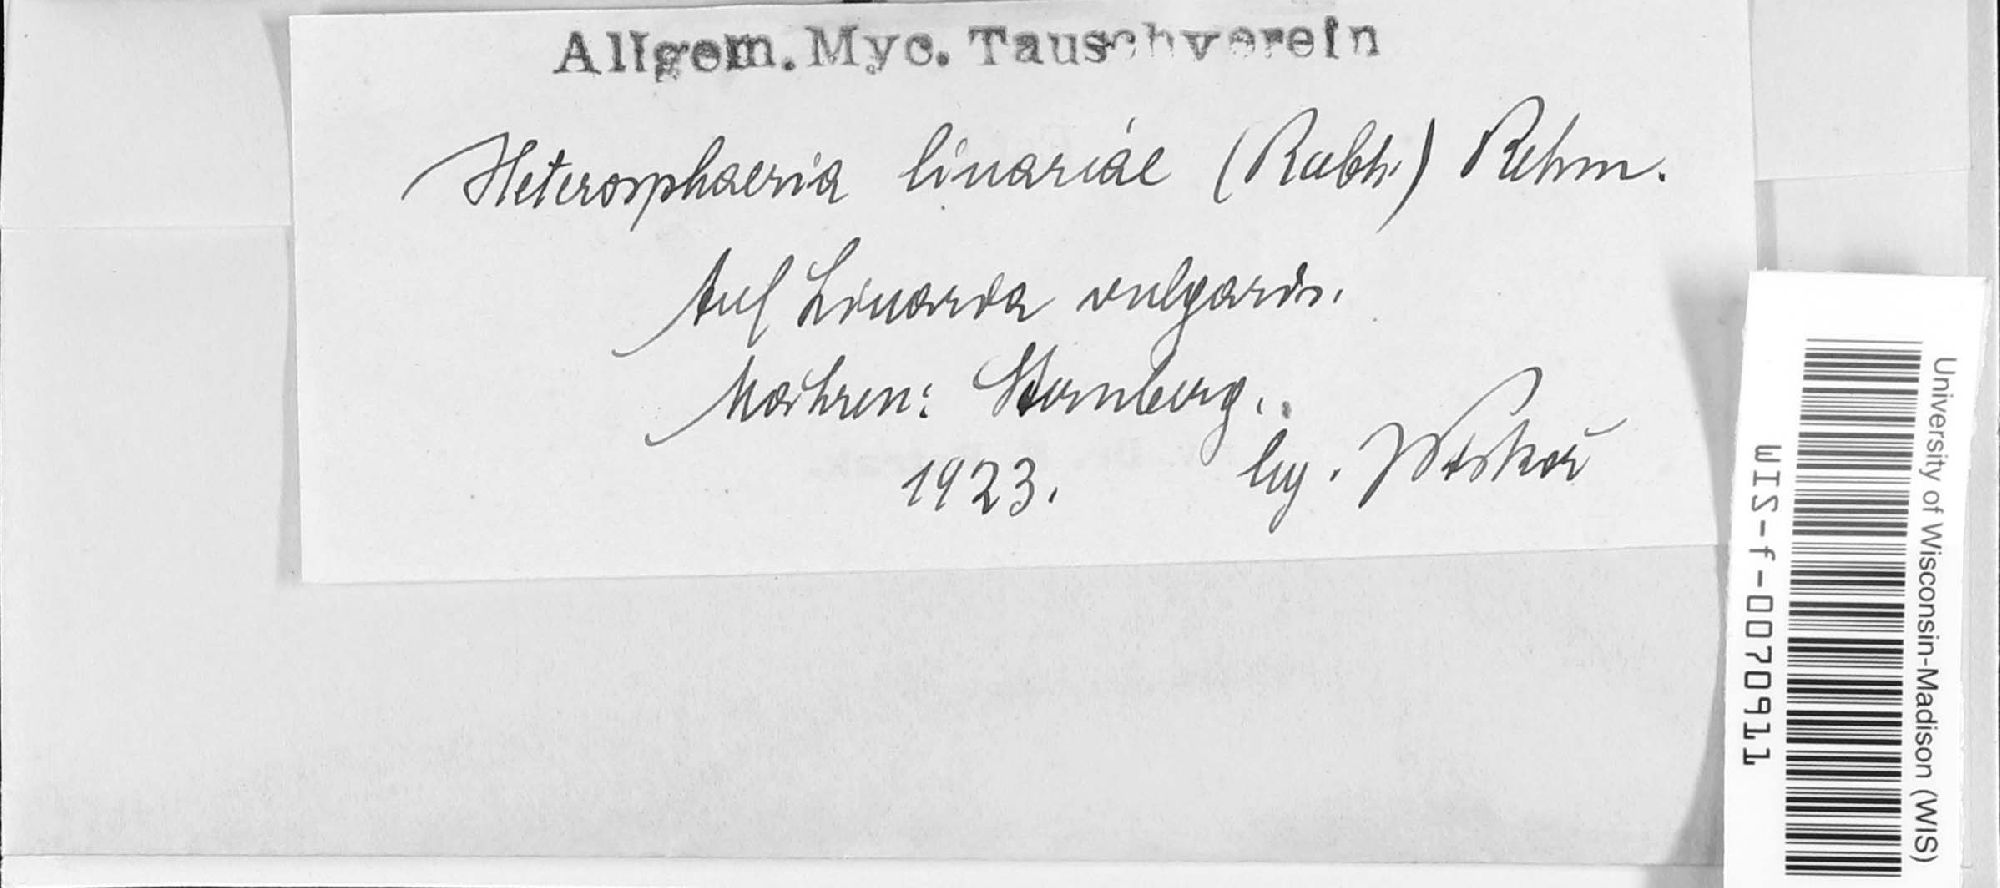 Allgem. Myc. Tauschverein
Heterosphaeria linariae (Rabh.) Rehm.
Auf Linaria vulgaris.
Mähren: Sternberg.
1923. leg. Piskoř
University of Wisconsin-Madison (WIS)
WIS-f-0070911